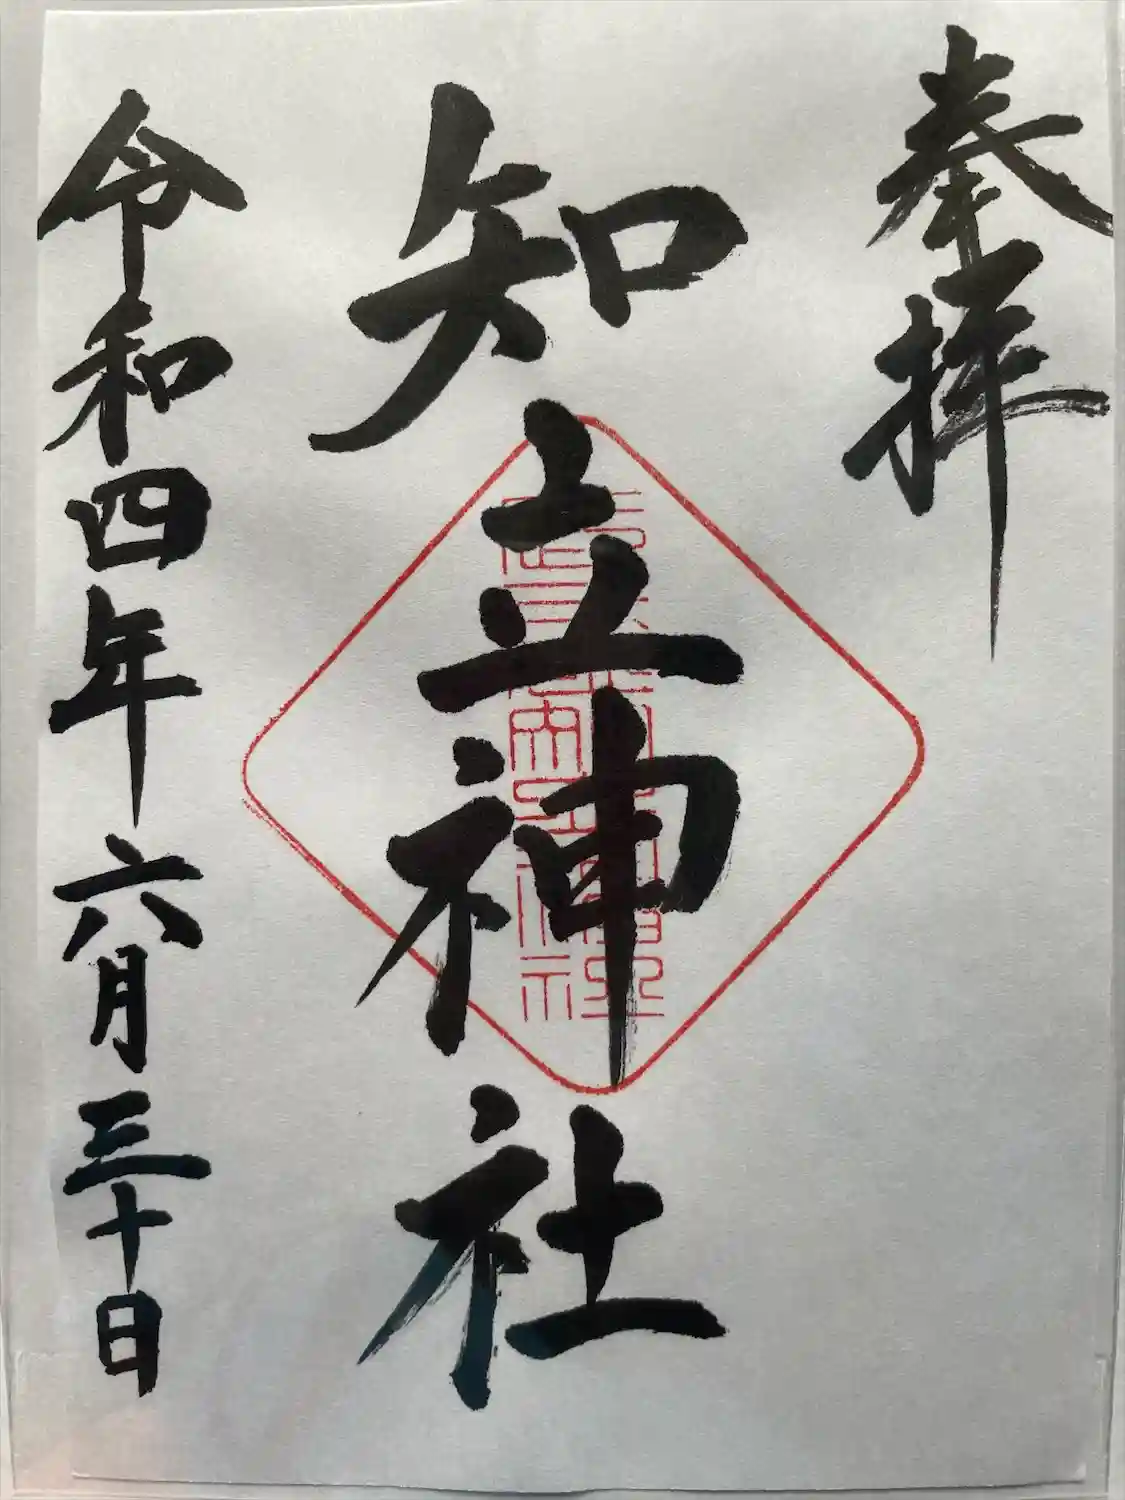 奉拝
知立神社
令和四年六月三十日